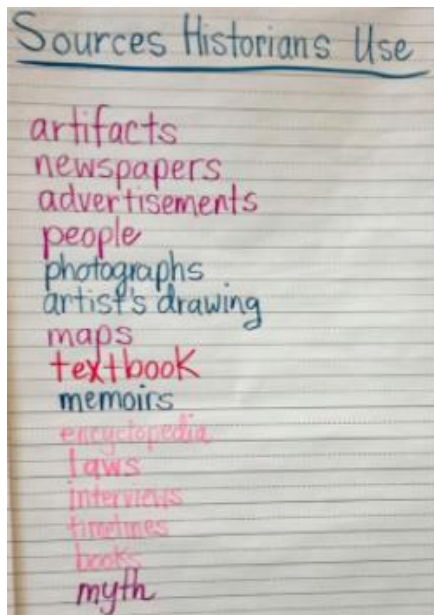 Sources Historians Use
artifacts
newspapers
advertisements
people
photographs
artist's drawing
maps
textbook
memoirs
encyclopedia
laws
interviews
timelines
books
myth